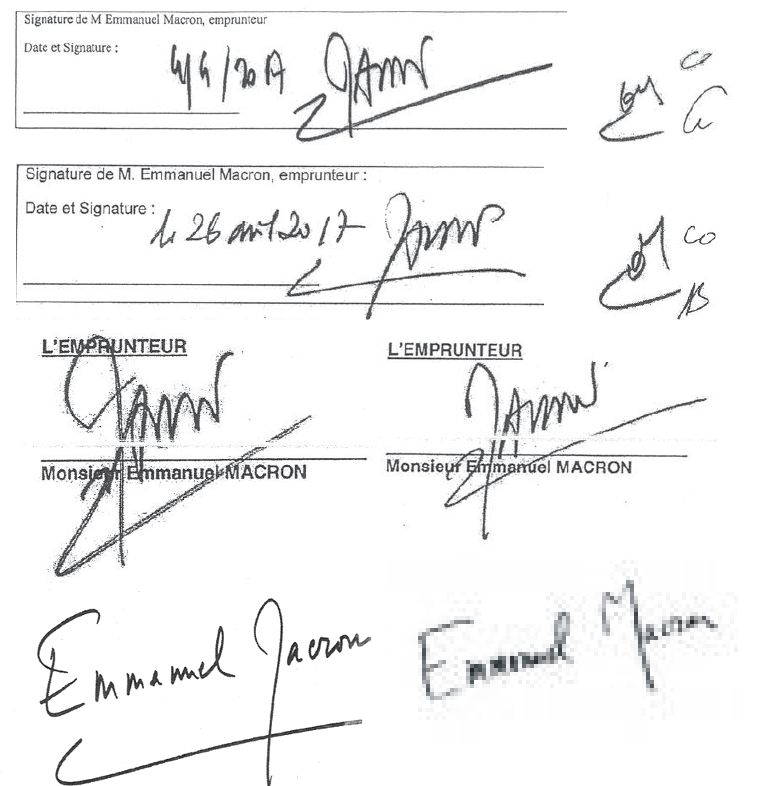 Signature de M Emmanuel Macron, emprunteur
Date et Signature :
4/4/2017
CO
Signature de M. Emmanuel Macron, emprunteur :
Date et Signature :
le 26 avril 2017
CO
AB
L'EMPRUNTEUR
L'EMPRUNTEUR
Monsieur Emmanuel MACRON
Monsieur Emmanuel MACRON
Emmanuel Macron
Emmanuel Macron